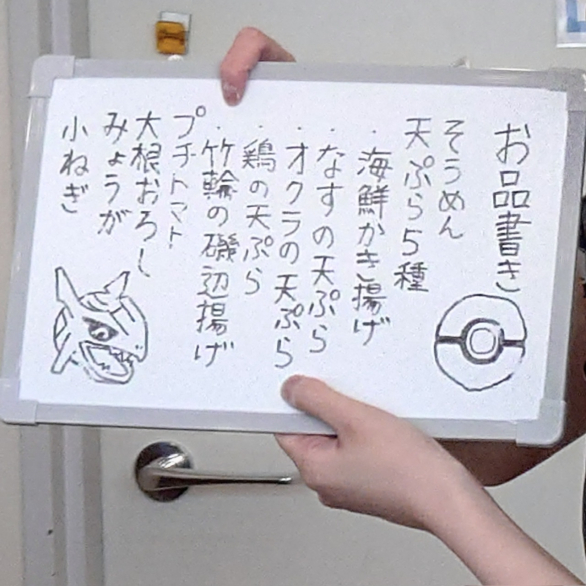 お品書き
そうめん
天ぷら5種
・海鮮かき揚げ
・なすの天ぷら
・オクラの天ぷら
・鶏の天ぷら
・竹輪の磯辺揚げ
プチトマト
大根おろし
みょうが
小ねぎ